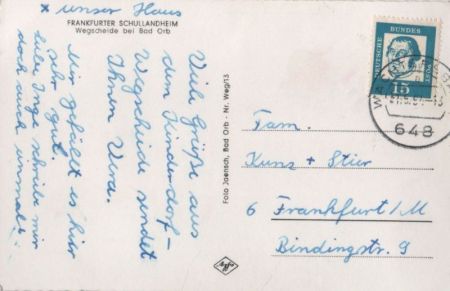 x unser Haus
FRANKFURTER SCHULLANDHEIM
Wegscheide bei Bad Orb
Viele Grüße aus
dem Kinderdorf-
Wegscheide sendet
Ihnen Vera.
Mir gefällt es hier
sehr gut.
Liebe Inge schreibe mir
doch auch einmal!
Foto Jaensch, Bad Orb - Nr. Weg/13
DEUTSCHE BUNDESPOST
15
648
Fam.
Kunz + Stier
6 Frankfurt/M
Bindingstr. 9
Agfa